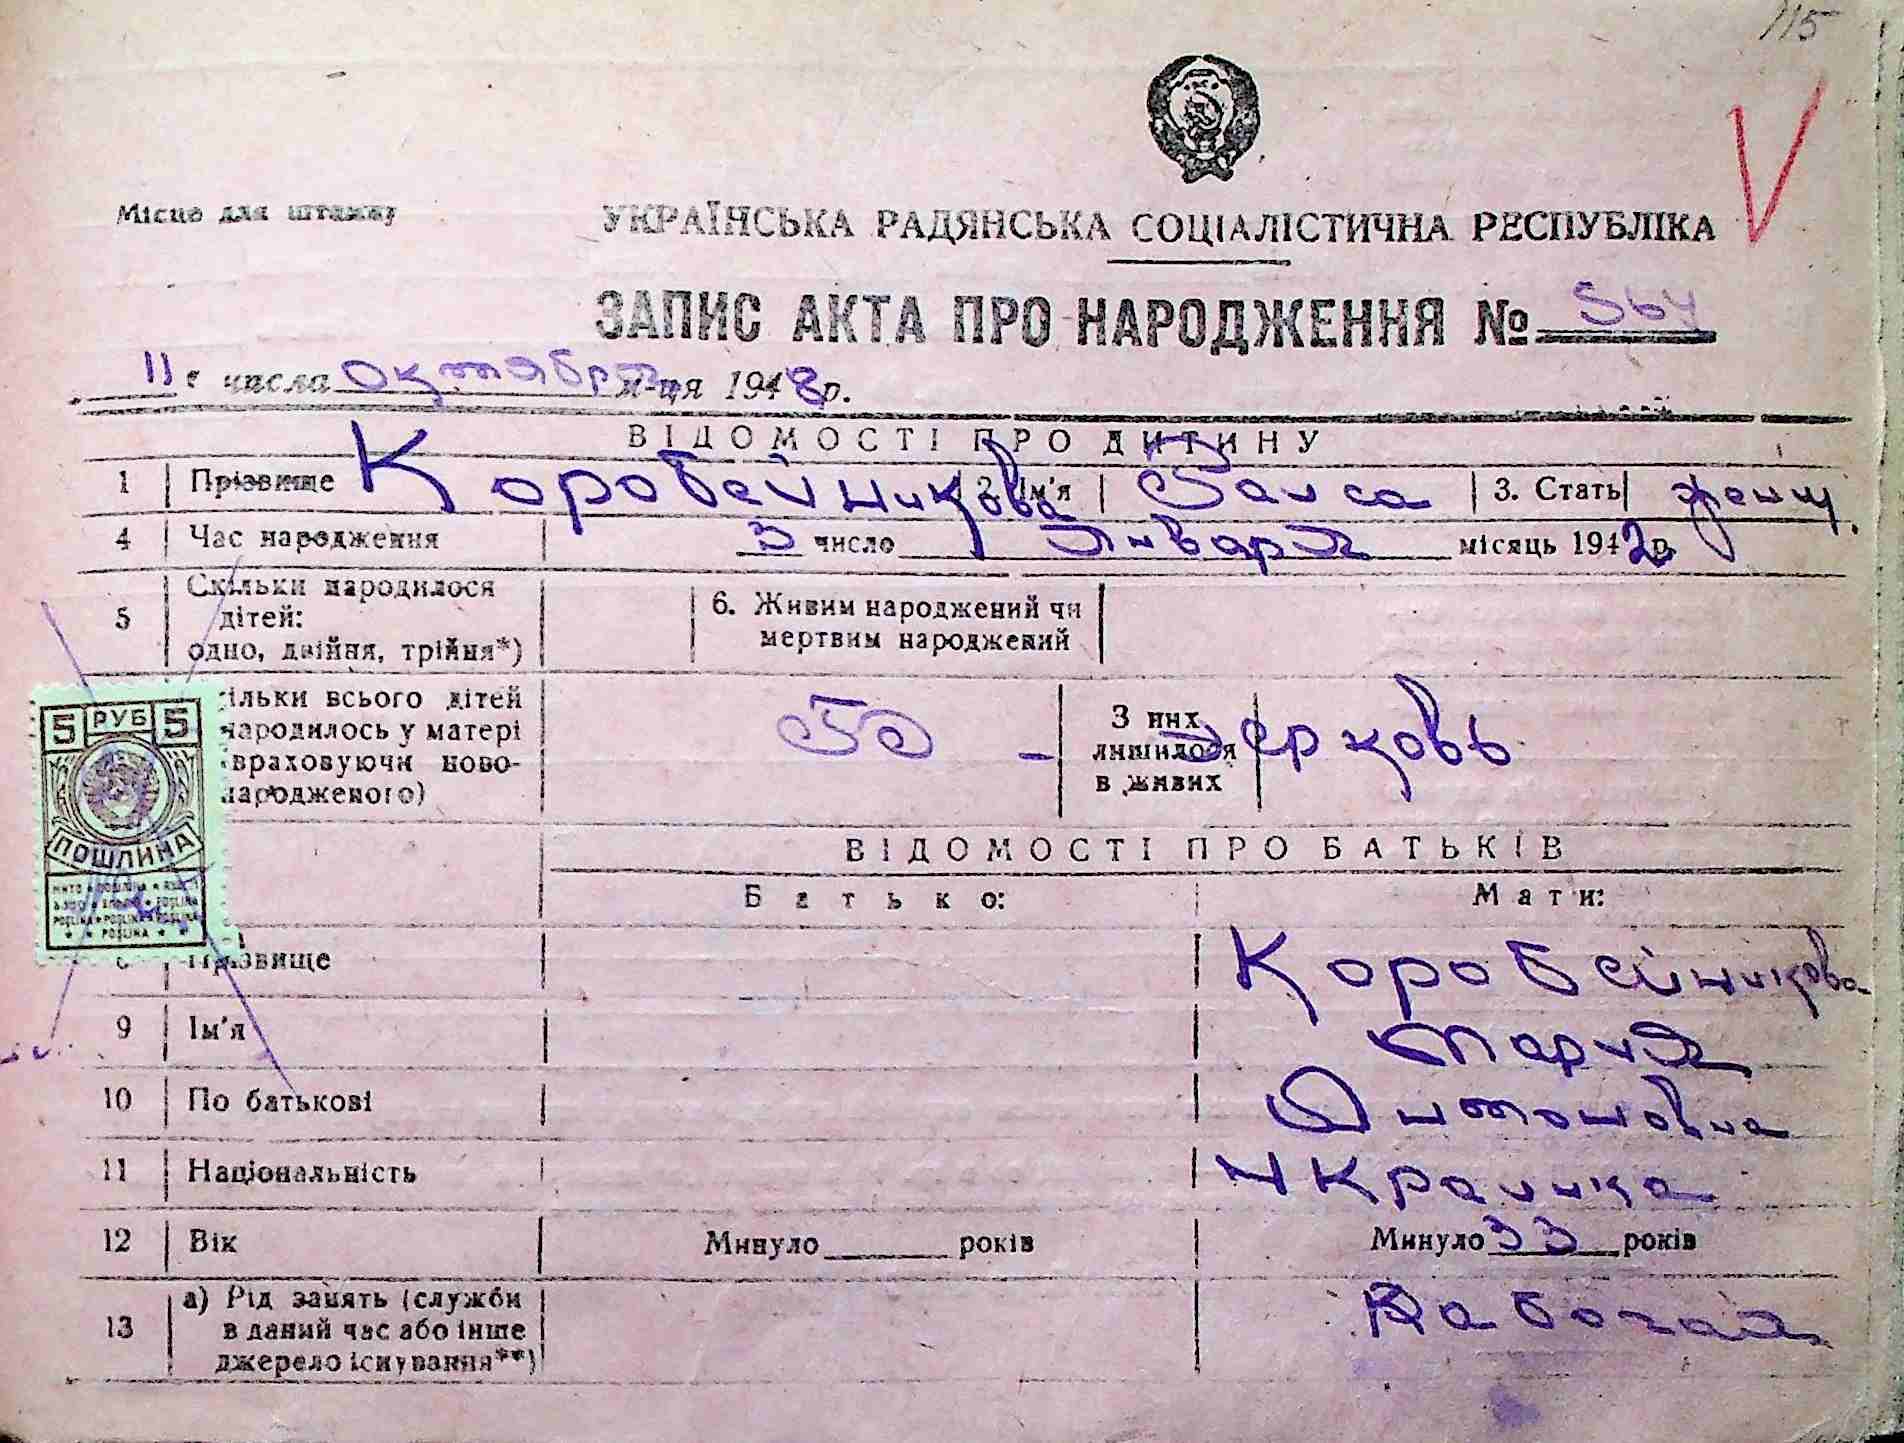 115
Місце для штампу
УКРАЇНСЬКА РАДЯНСЬКА СОЦІАЛІСТИЧНА РЕСПУБЛІКА
ЗАПИС АКТА ПРО НАРОДЖЕННЯ № 564
11 числа октября м-ця 1948 р.
ВІДОМОСТІ ПРО ДИТИНУ
1 Прізвище Коробейникова 2. Ім'я 3. Стать женщ.
4 Час народження 3 число Января місяць 1942 р.
5 Скільки народилося
дітей:
одно, двійня, трійня*)
6. Живим народжений чи
мертвим народжений
ільки всього дітей
народилось у матері
враховуючи ново-
народженого)
З них
лишилося
в живих
5 РУБ 5
ПОШЛИНА
POŞLINA
ВІДОМОСТІ ПРО БАТЬКІВ
Батько: Мати:
8 Прізвище Коробейникова
9 Ім'я Мария
10 По батькові Антоновна
11 Національність Украинка
12 Вік Минуло років Минуло 33 років
13 а) Рід занять (служби
в даний час або інше
джерело існування**)